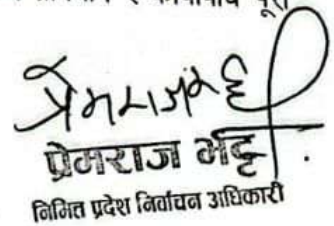 प्रेमराज भट्ट
प्रेमराज भट्ट
निमित्त प्रदेश निर्वाचन अधिकारी